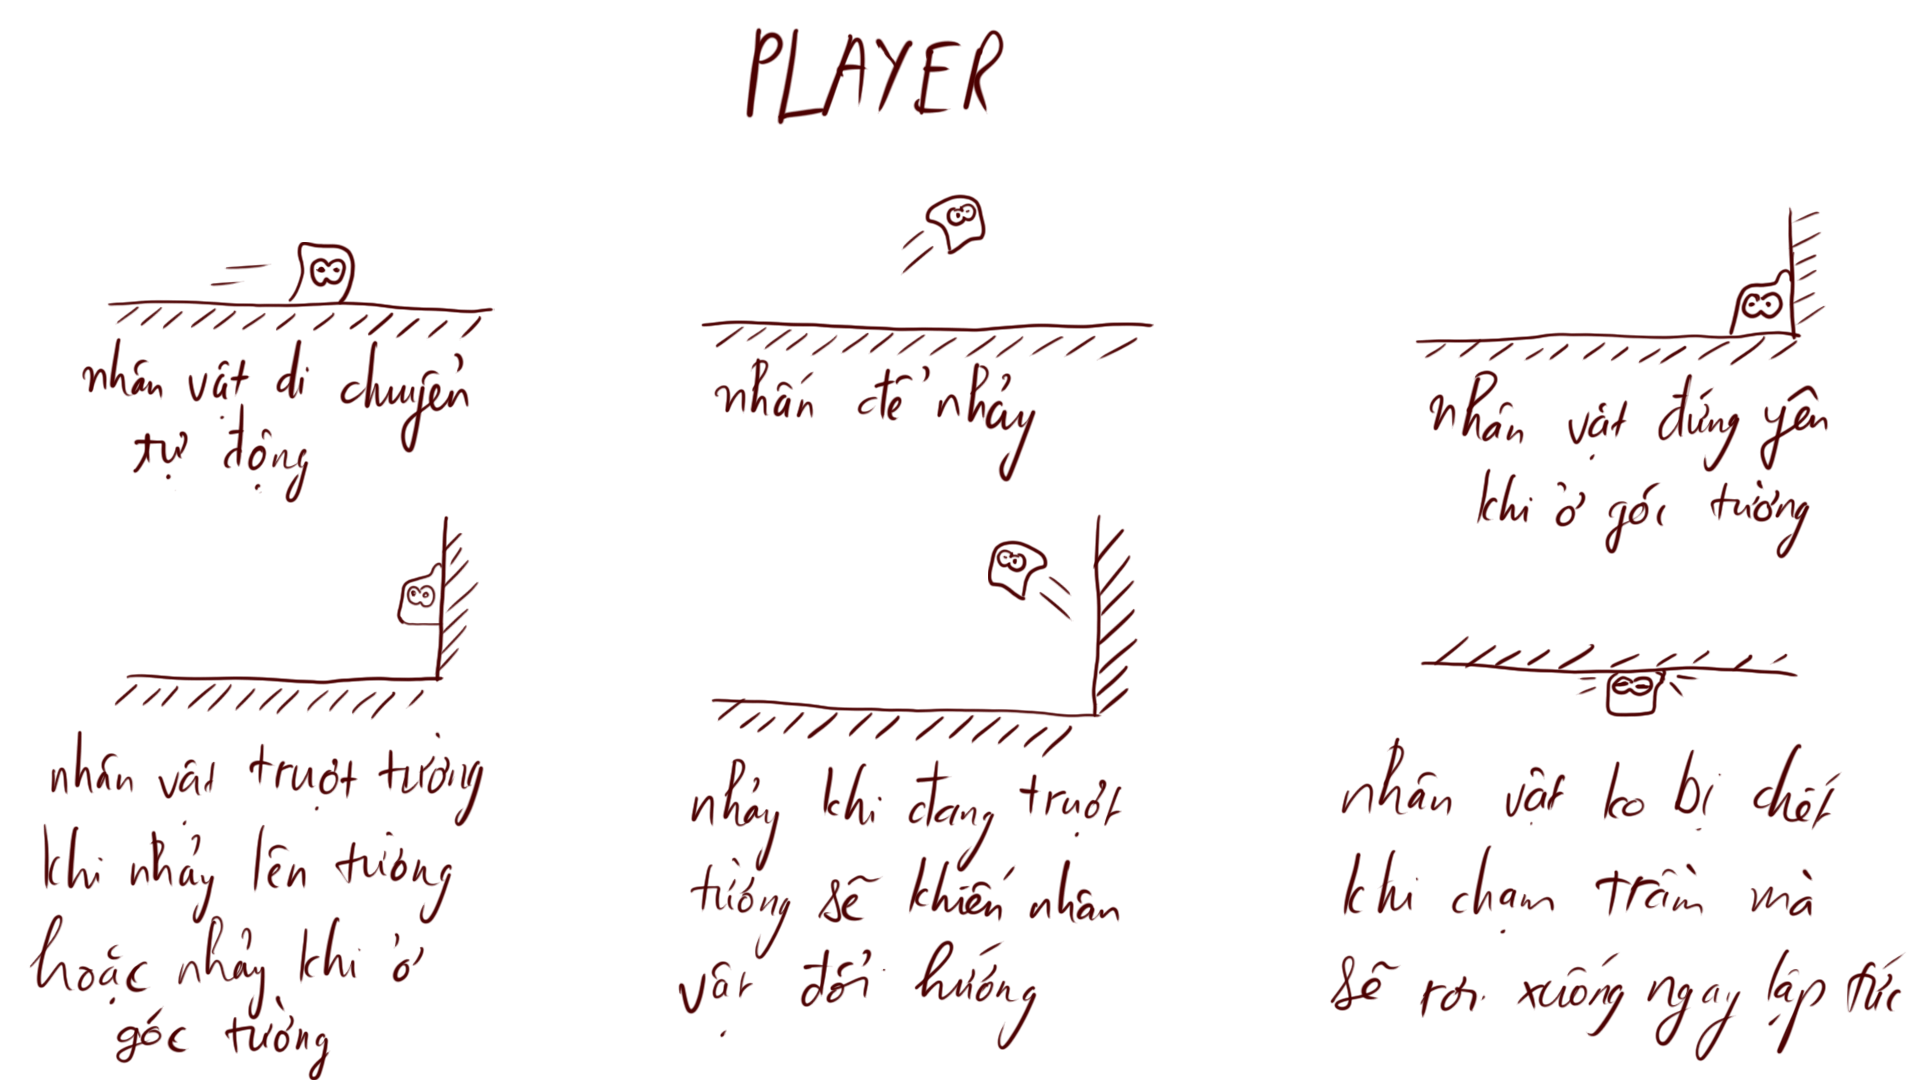 PLAYER
nhân vật di chuyển
tự động
nhấn để nhảy
nhân vật đứng yên
khi ở góc tường
nhân vật trượt tường
khi nhảy lên tường
hoặc nhảy khi ở
góc tường
nhảy khi đang trượt
tường sẽ khiến nhân
vật đổi hướng
nhân vật ko bị chết
khi chạm trần mà
sẽ rơi xuống ngay lập tức